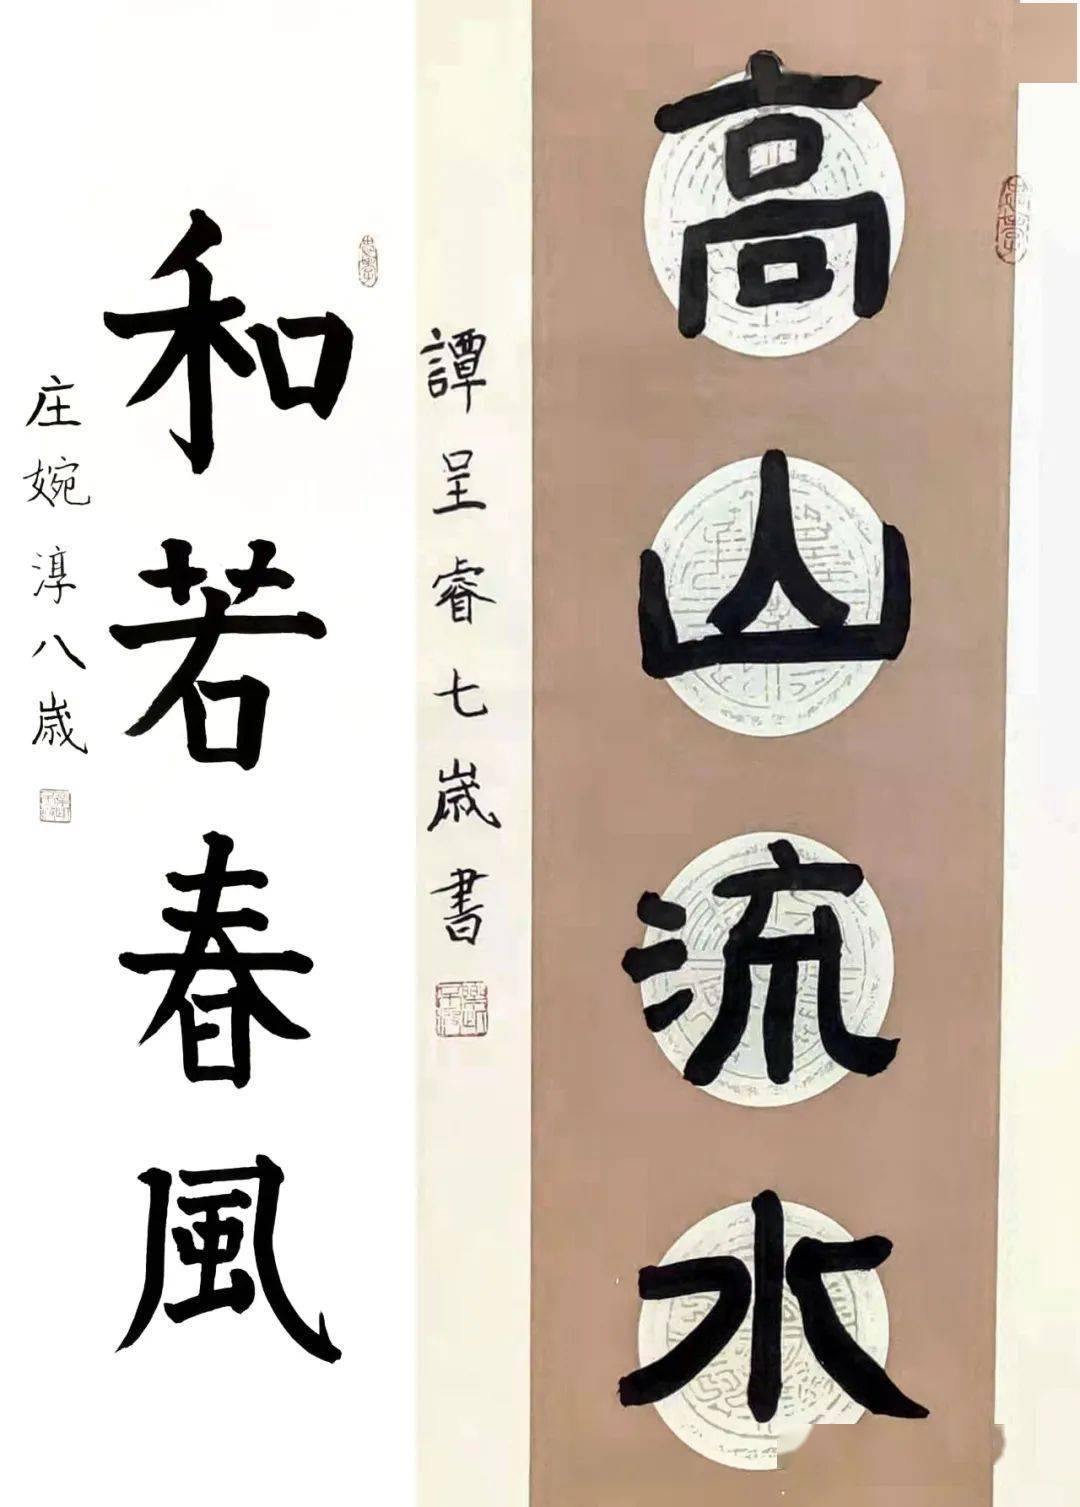 高山流水
譚呈睿七歲書
和若春風
庄婉淳八歲